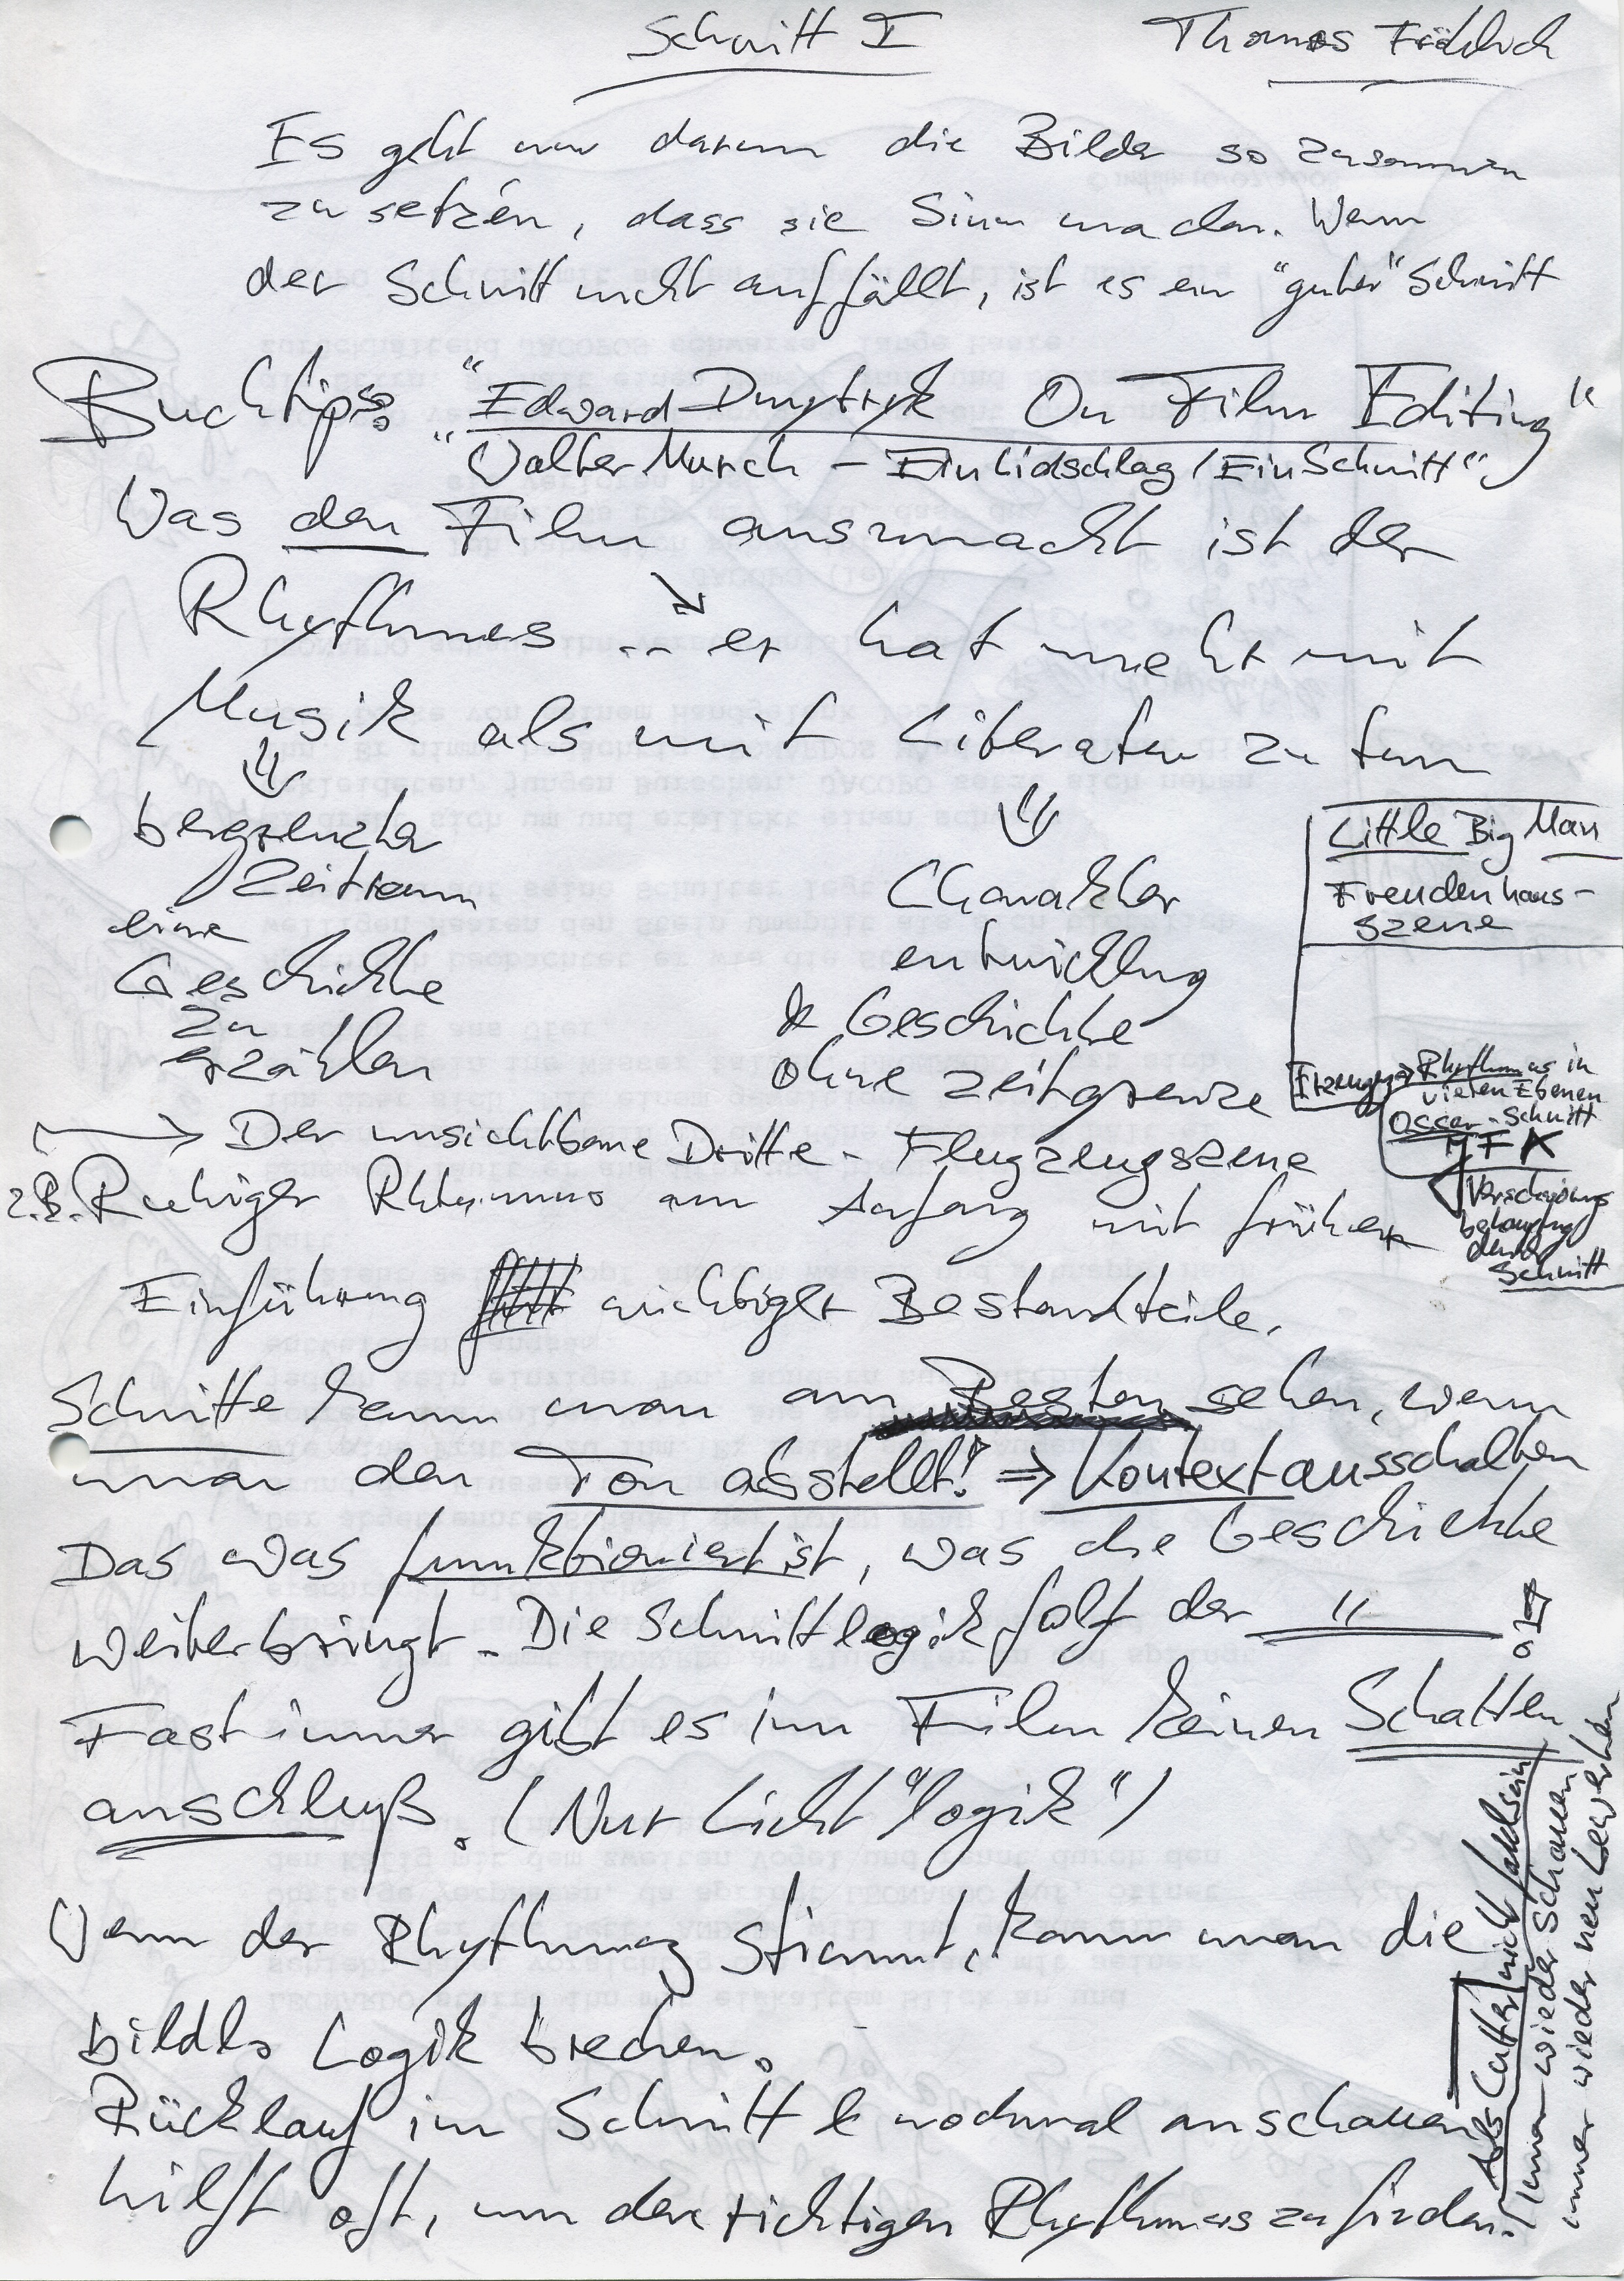 Schnitt I
Thomas Fröhlich
Es geht nur darum die Bilder so zusammen
zu setzen, dass sie Sinn machen. Wenn
der Schnitt nicht auffällt, ist es ein "guter" Schnitt
Buchtips: "Edward Dmytryk On Film Editing"
"Walter Murch – Ein Lidschlag / Ein Schnitt"
Was den Film ausmacht ist der
Rhythmus ... er hat mehr mit
Musik als mit Literatur zu tun
begrenzter
Zeitraum
eine
Geschichte
zu
erzählen
Charakter
entwicklung
& Geschichte
ohne zeitgrenze
Little Big Man
Freudenhaus-
szene
Rhythmus in
vielen Ebenen
Oscar - Schnitt
JFK
durch
Schnitt
→ Der unsichtbare Dritte - Flugzeugszene
z.B. Ruhiger Rhythmus am Anfang mit früher
Einführung wichtiger Bestandteile.
Schnitte kann man am Besten sehen, wenn
man den Ton abstellt! ⇒ Kontext ausschalten
Das was funktioniert ist, was die Geschichte
weiterbringt. Die Schnittlogik folgt der "
Fast immer gibt es im Film keinen Schatten
anschluß. (Nur Licht "logik")
Wenn der Rhythmus stimmt, kann man die
bildl. Logik brechen.
Rücklauf im Schnitt & nochmal anschauen
hilft oft, um den richtigen Rhythmus zu finden.
Als Cutter nicht dabei sein
immer wieder schauen
immer wieder neu bewerten